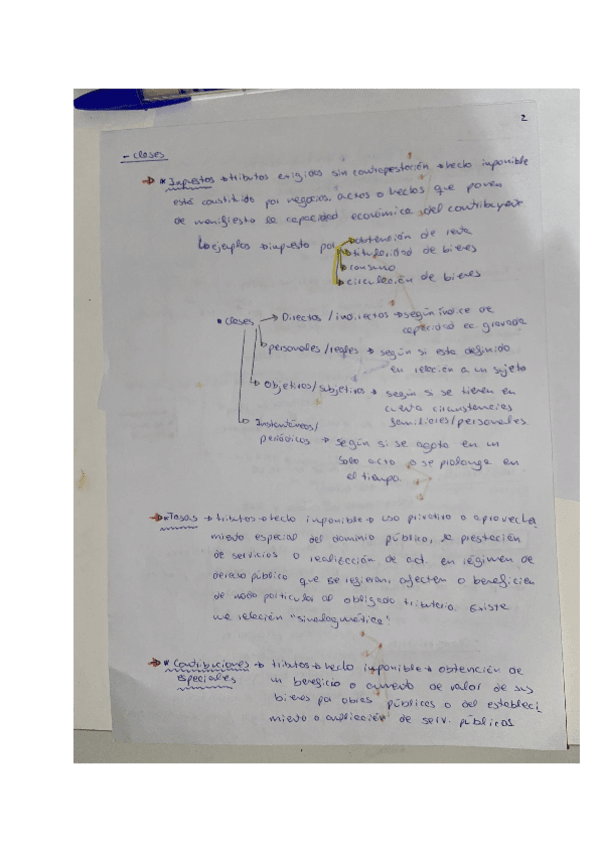 2
- Clases
→ * Impuestos → tributos exigidos sin contraprestación → hecho imponible
está constituido por negocios, actos o hechos que ponen
de manifiesto la capacidad económica del contribuyente
↳ ejemplos → impuesto por → obtención de renta
→ titularidad de bienes
→ consumo
→ circulación de bienes
* Clases → Directos / indirectos → según índice de
capacidad ec. gravada
→ personales / reales → según si esta definido
en relación a un sujeto
→ Objetivos / subjetivos → según si se tienen en
cuenta circunstancias
familiares / personales
→ Instantáneos /
periódicos → según si se agota en un
solo acto o se prolonga en
el tiempo.
→ * Tasas → tributos → hecho imponible → uso privativo o aprovecha
miento especial del dominio público, la prestación
de servicios o realización de act. en régimen de
derecho público que se refieran, afecten o beneficien
de modo particular al obligado tributario. Existe
una relación "sinalagmática".
→ * Contribuciones → tributos → hecho imponible → obtención de
especiales un beneficio o aumento de valor de sus
bienes por obras públicas o del estableci
miento o ampliación de serv. públicos